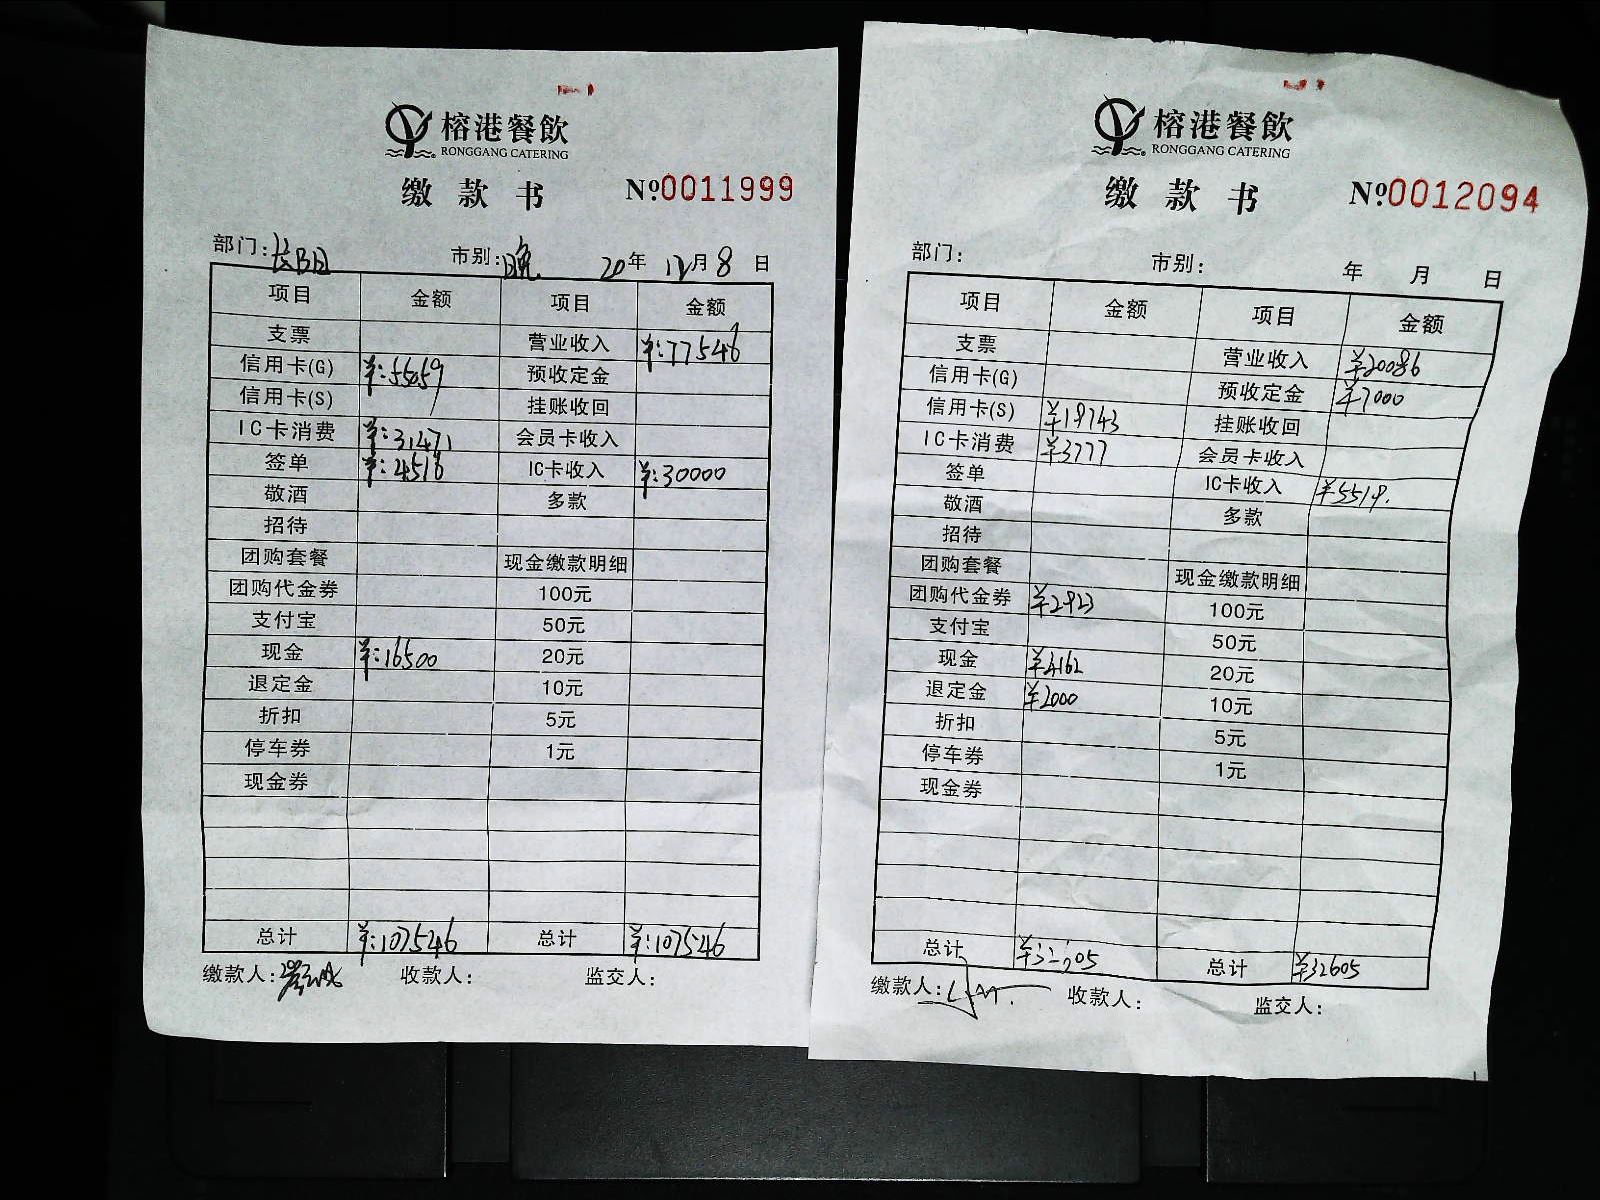 榕港餐飲
RONGGANG CATERING
缴款书 №0011999
部门: 市别:晚 20年12月8日
项目 金额 项目 金额
支票 营业收入 ¥:77546
信用卡(G) ¥:55059 预收定金
信用卡(S) 挂账收回
IC卡消费 ¥:31471 会员卡收入
签单 ¥:4516 IC卡收入 ¥:30000
敬酒 多款
招待
团购套餐 现金缴款明细
团购代金券 100元
支付宝 50元
现金 ¥:16500 20元
退定金 10元
折扣 5元
停车券 1元
现金券
总计 ¥:107546 总计 ¥:107546
缴款人: 收款人: 监交人:
榕港餐飲
RONGGANG CATERING
缴款书 №0012094
部门: 市别: 年 月 日
项目 金额 项目 金额
支票 营业收入 ¥20086
信用卡(G) 预收定金 ¥7000
信用卡(S) ¥19743 挂账收回
IC卡消费 ¥3777 会员卡收入
签单 IC卡收入 ¥5519.
敬酒 多款
招待
团购套餐 现金缴款明细
团购代金券 ¥2923 100元
支付宝 50元
现金 ¥4162 20元
退定金 ¥2000 10元
折扣 5元
停车券 1元
现金券
总计 ¥32605 总计 ¥32605
缴款人: 收款人: 监交人: